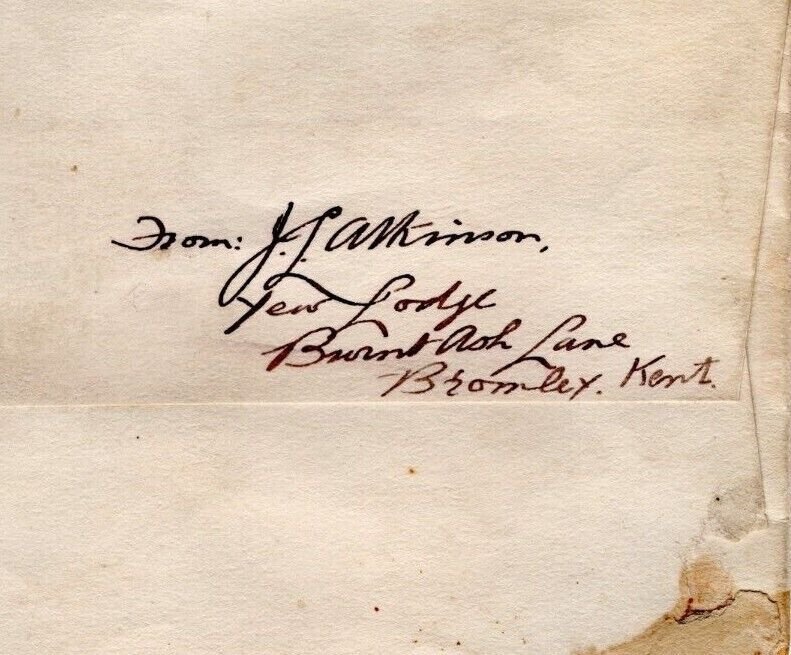 From: J. L. Atkinson,
Yew Lodge
Burnt Ash Lane
Bromley. Kent.